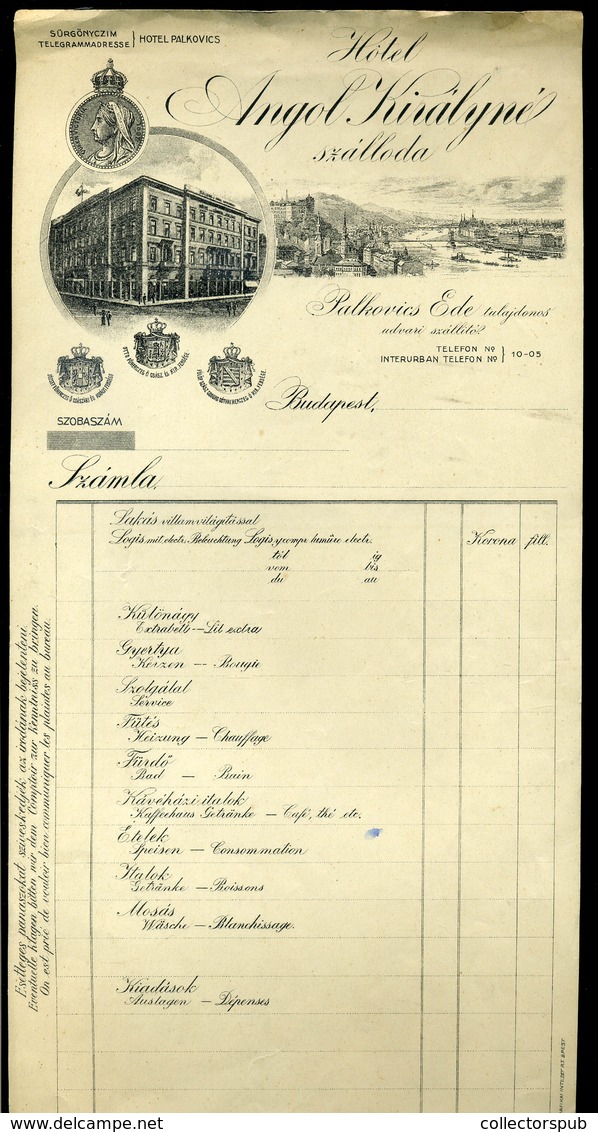 SÜRGÖNYCZIM
TELEGRAMMADRESSE } HOTEL PALKOVICS
Hôtel
Angol Királyné
szálloda
Palkovics Ede tulajdonos
udvari szállító
TELEFON No
INTERURBAN TELEFON No } 10-05
Budapest,
SZOBASZÁM
Számla
Lakás villamvilágítással
Logis mit electr. Beleuchtung Logis y compr. lumière electr.
Korona fill.
tól ig
vom bis
du au
Különágy
Extrabett — Lit extra
Gyertya
Kerzen — Bougie
Szolgálat
Service
Fűtés
Heizung — Chauffage
Fürdő
Bad — Bain
Kávéházi italok
Kaffeehaus Getränke — Café, thé etc.
Ételek
Speisen — Consommation
Italok
Getränke — Boissons
Mosás
Wäsche — Blanchissage.
Kiadások
Auslagen — Dépenses
Esetleges panaszokat sziveskedjék az irodának bejelenteni.
Eventuelle Klagen bitten wir dem Comptoir zur Kenntniss zu bringen.
On est prié de vouloir bien communiquer les plaintes au bureau.
www.delcampe.net
collectorspub